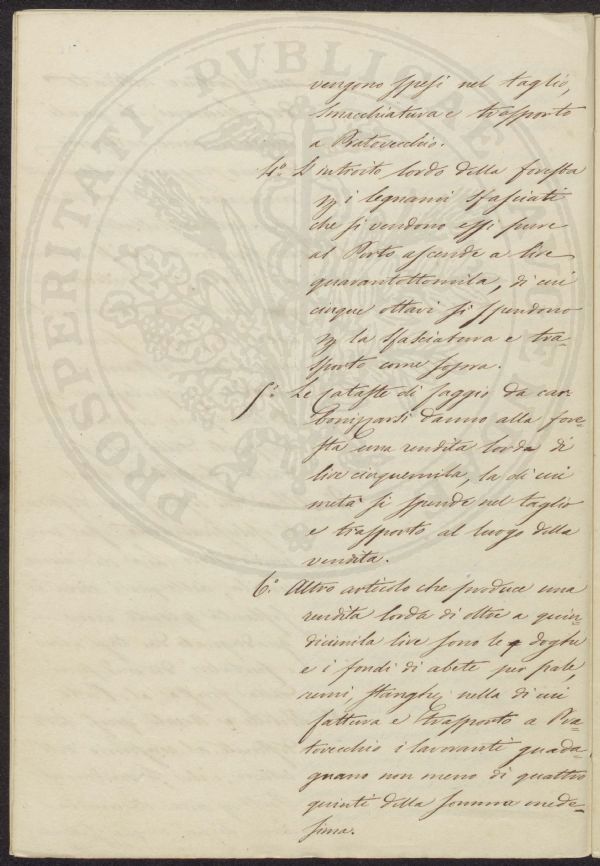 vengono spesi nel taglio,
smacchiatura e trasporto
a Pratovecchio.
4.° L'introito lordo della foresta
p i legnami sfasciati
che si vendono essi pure
al Porto ascende a lire
quarantottomila, di cui
cinque ottavi si spendono
p la sfasciatura e tra=
sporto come sopra.
5.° Le cataste di faggio da car=
bonizzarsi danno alla fore=
sta una rendita lorda di
lire cinquemila, la di cui
metà si spende nel taglio
e trasporto al luogo della
vendita.
6.° Altro articolo che produce una
rendita lorda di oltre a quin=
dicimila lire sono le doghe
e i fondi di abete per pale,
remi, stanghe, nella di cui
fattura e trasporto a Pra=
tovecchio i lavoranti guada=
gnano non meno di quattro
quinti della somma mede=
sima.
PROSPERITATI PUBLICAE